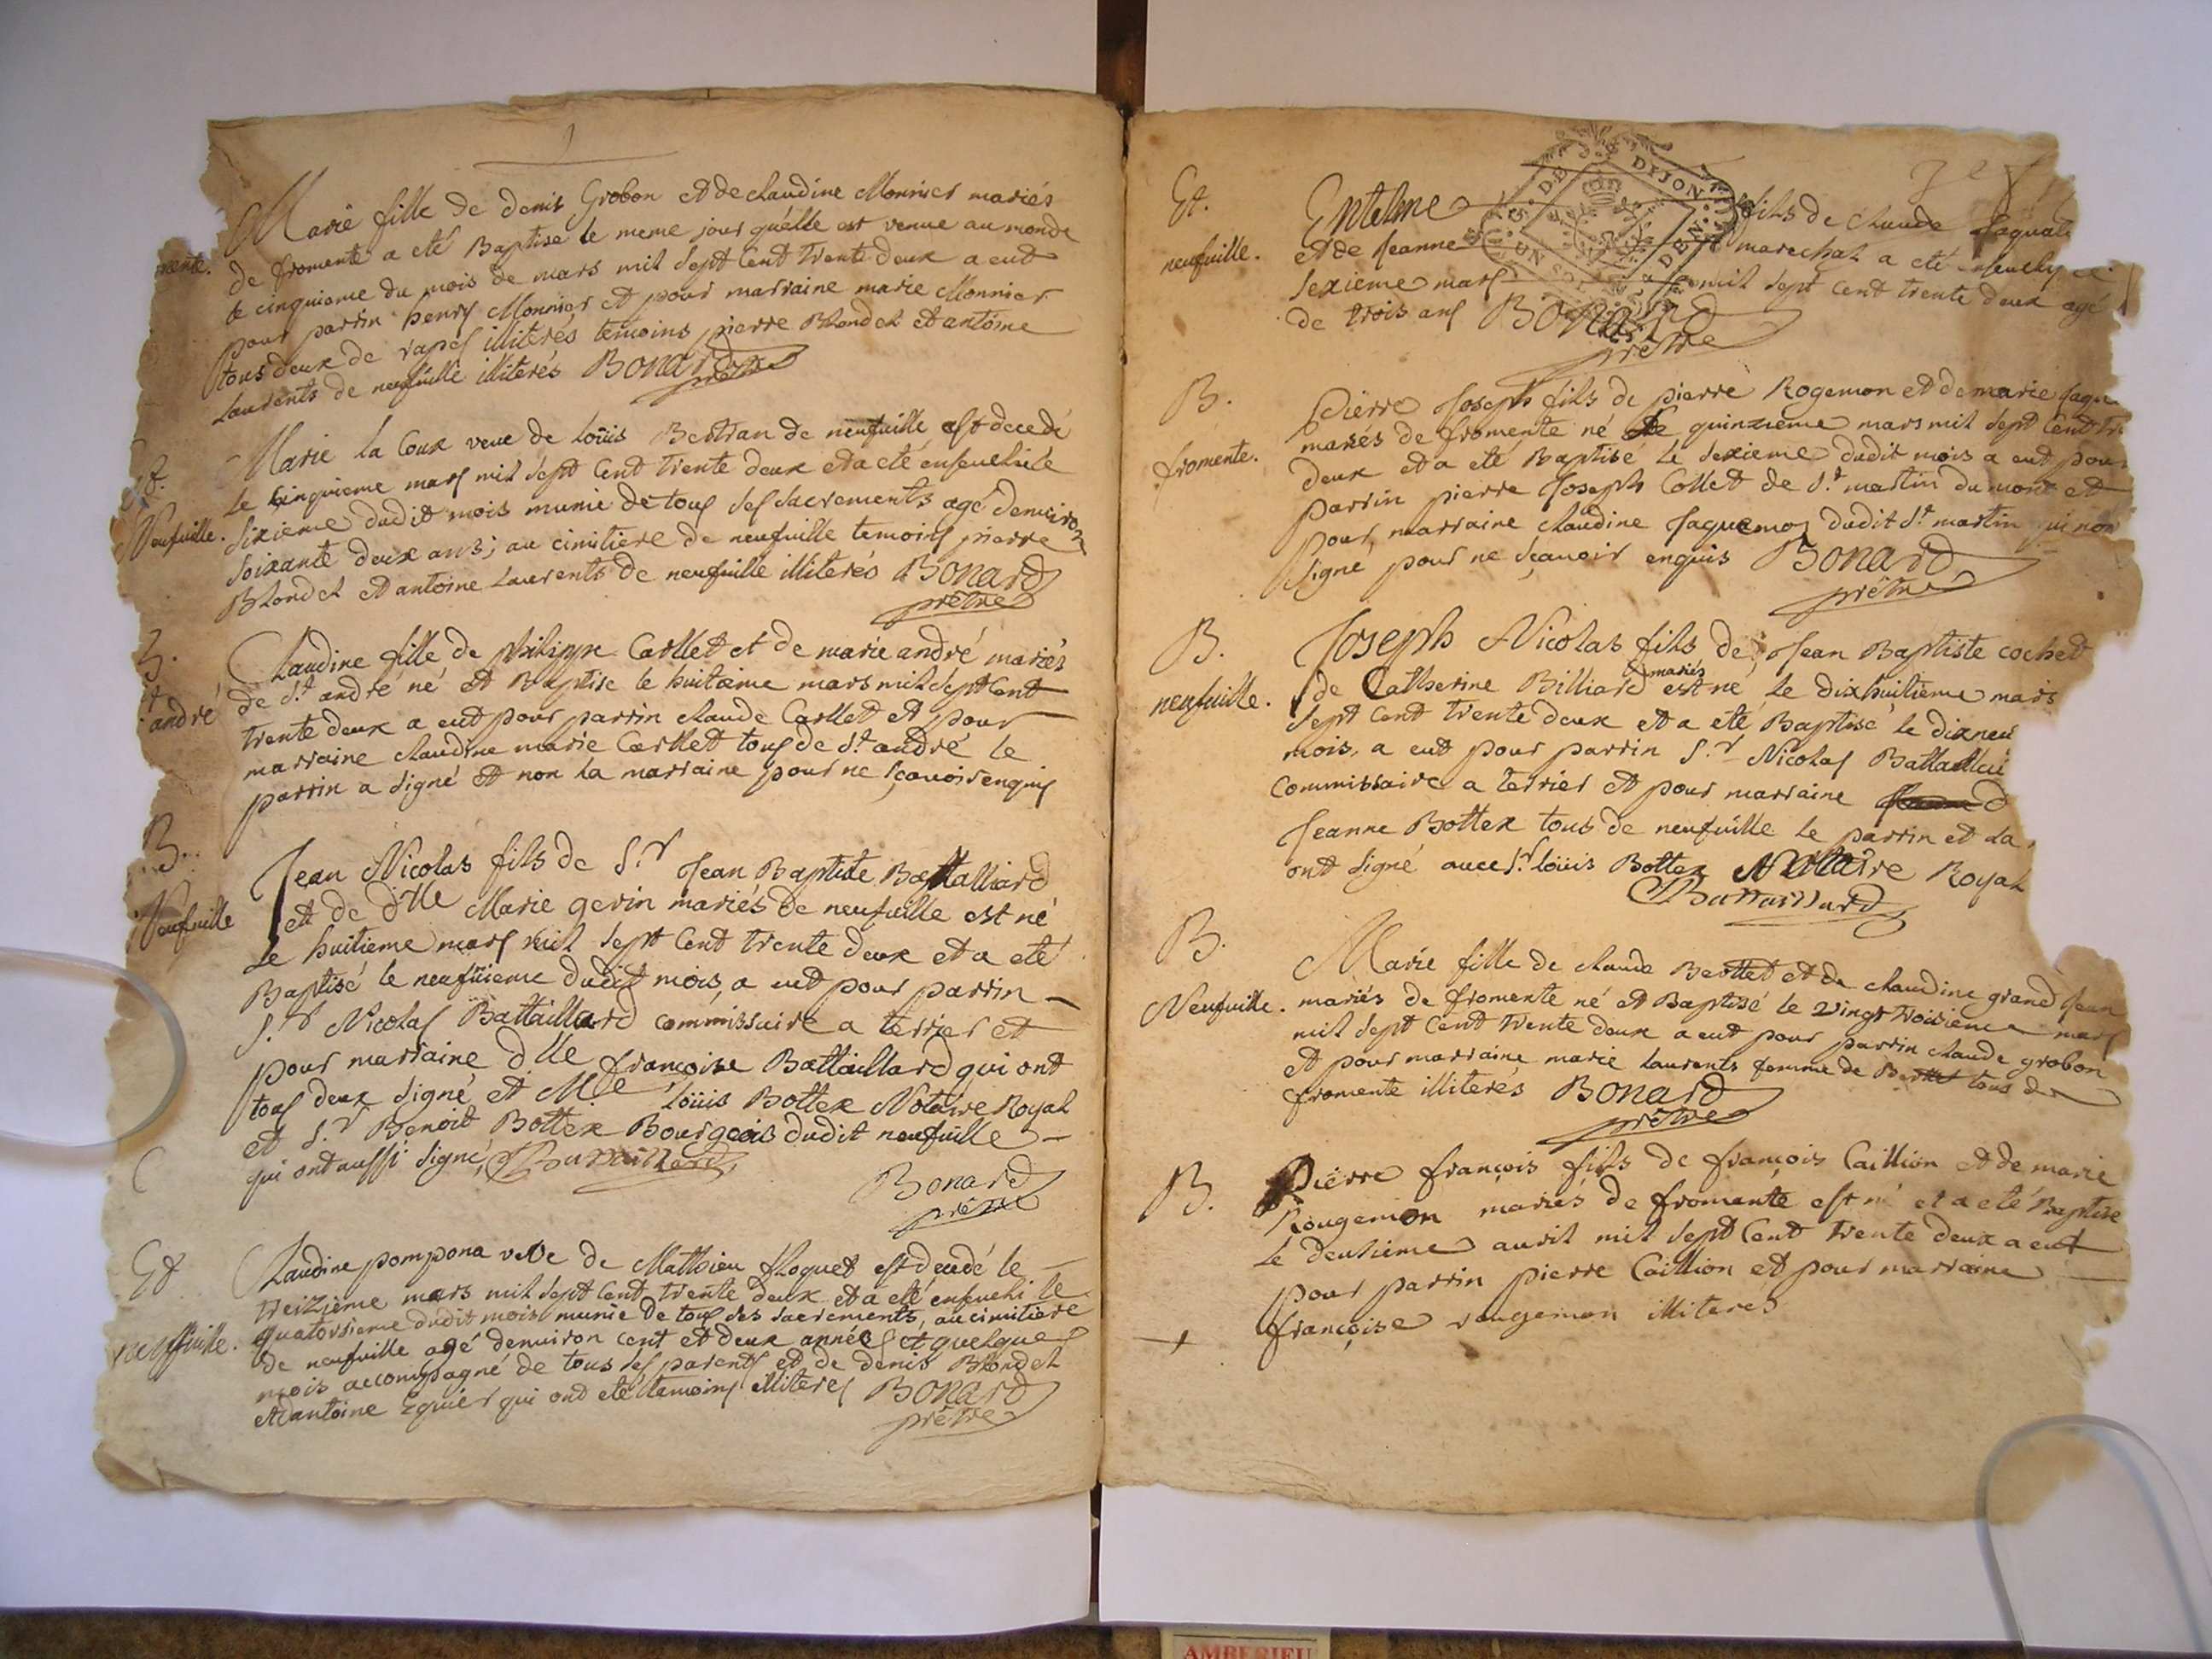 Marie fille de denis Grobon et de claudine Monnier mariés
mente.
de fromente a eté Baptise le meme jour quélle est venue au monde
le cinquieme du mois de mars mil sept Cent trente deux a eut
pour parrin henry Monnier et pour marraine marie Monnier
tous deux de rapes illiterés temoins pierre Blondel et antoine
Laurents de neufuille illiterés Bonard
prêtre
Et.
Neufuille.
Marie la Coux veue de loüis Bertran de neufuille est decedé
le cinquieme mars mil sept Cent trente deux et a eté enseueli le
sixieme dudit mois munie de tous ses sacrements agé denuiron
soixante deux ans; au cimitiere de neufuille temoins pierre
Blondel et antoine Laurents de neufuille illiterés Bonard
prêtre
B.
andré
Claudine fille de philippe Carllet et de marie andré mariés
de St. andré né et Baptise le huitieme mars mil sept Cent
trente deux a eut pour parrin claude Carllet et pour
marraine claudine marie Carllet tous de St. andré le
parrin a signé et non la marraine pour ne sçauoir enquis
B.
Neufuille
Jean Nicolas fils de S.r Jean Baptiste Battalliard
et de dlle Marie gerin mariés de neufuille est né
le huitieme mars mil sept Cent trente deux et a eté
Baptisé le neufuieme dudit mois, a eut pour parrin
S.r Nicolas Battaillard commissaire a terrier et
pour marraine dlle françoise Battaillard qui ont
tous deux signé et Me loüis Bottex Notaire Royal
et S.r Benoit Bottex Bourgeois dudit neufuille
qui ont aussi signé Battaillard
Bonard
prêtre
Et
neufuille.
Claudine pompona veue de Mathieu floquet est decedé le
treizieme mars mil sept Cent trente deux et a eté enseueli le
quatorsieme dudit mois munie de tous ses sacrements, au cimitiere
de neufuille agé denuiron cent et deux années et quelques
mois accompagné de tous ses parents et de denis Blondel
et antoine Eguier qui ont eté temoins illiteres Bonard
prêtre
Et.
neufuille.
DE DIJON
Entelme fils de claude
et de Jeanne marechal a eté
sexieme mars mil sept Cent trente deux agé
de trois ans Bonard
prêtre
B.
fromente.
Pierre Joseph fils de pierre Rogemon et de marie Jaque
mariés de fromente né le quinzieme mars mil sept Cent tr
deux et a eté Baptisé le sexieme dudit mois a eut pour
parrin pierre Joseph Collet de St. martin du mont et
pour marraine claudine Jaquemoz dudit St martin qui non
signé pour ne sçauoir enquis Bonard
prêtre
B.
neufuille.
Joseph Nicolas fils de Jean Baptiste cochet
de Catherine Billiard mariés est né le dixhuitieme mars
sept Cent trente deux et a eté Baptisé le dixneu
mois, a eut pour parrin S.r Nicolas Battaillü
commissaire a terrier et pour marraine
Jeanne Bottex tous de neufuille le parrin et la
ont signé auec S.r loüis Bottex Notaire Royal
Battaillard
B.
Neufuille.
Marie fille de claude Beottet et de claudine grand Jean
mariés de fromente né et Baptisé le vingt troisieme mars
mil sept Cent trente deux a eut pour parrin claude grobon
et pour marraine marie laurents femme de tous de
fromente illiterés Bonard
prêtre
B.
Pierre françois fils de françois Caillion et de marie
Rougemon mariés de fromente est né et a eté Baptise
le deusieme auril mil sept Cent trente deux a eut
pour parrin pierre Caillion et pour marraine
françoise rougemon illiterés
AMBERIEU